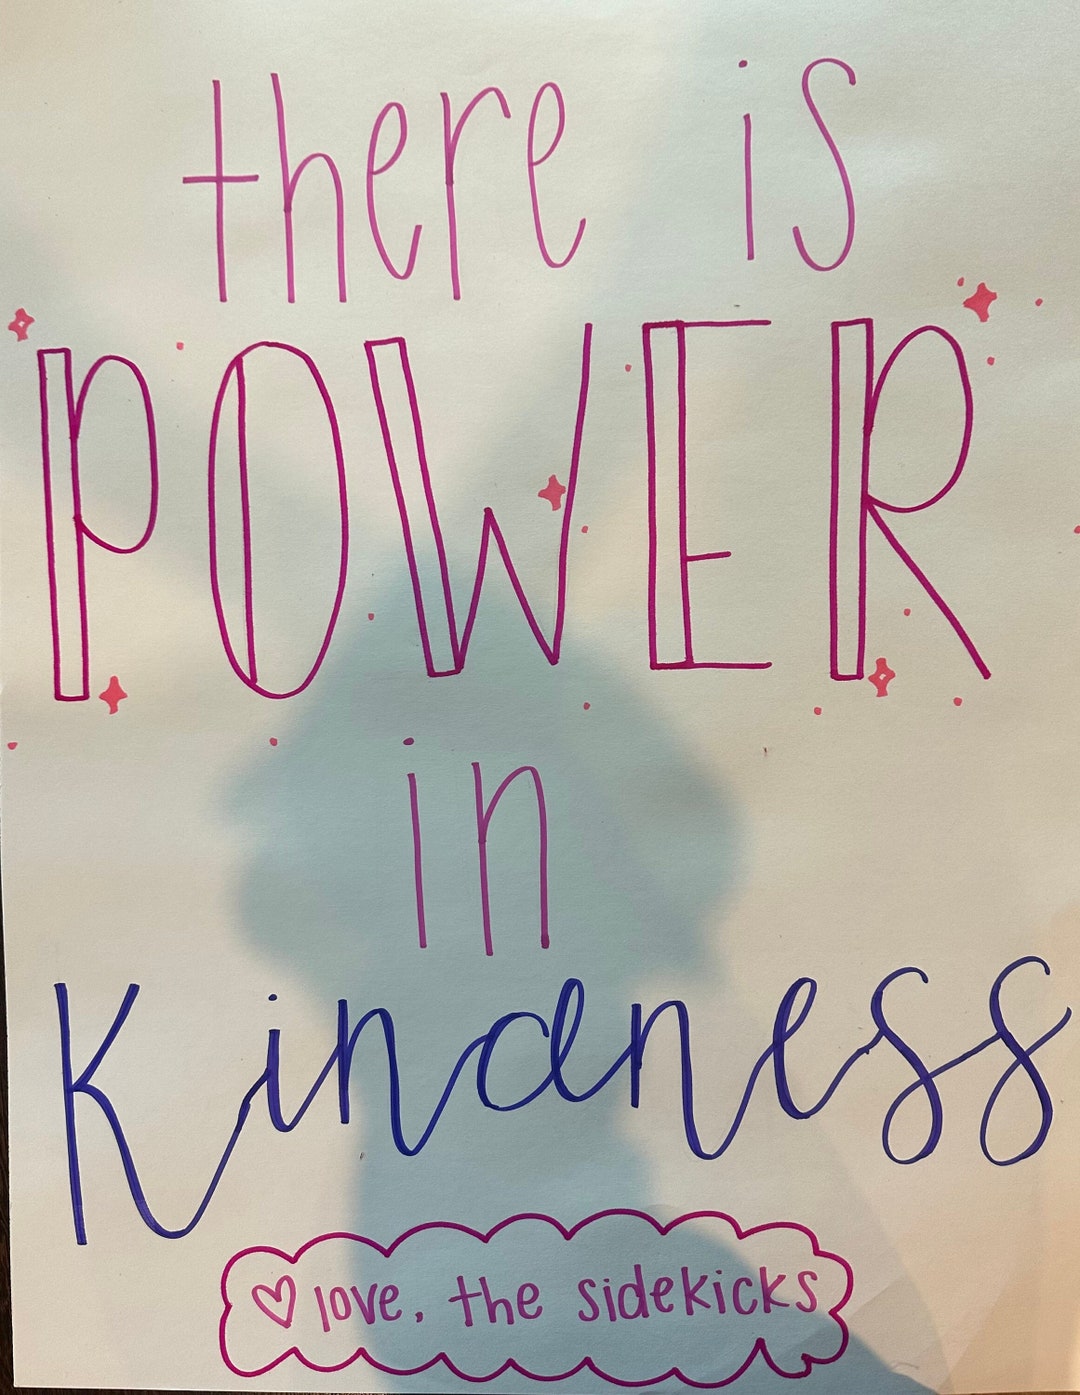 there is
POWER
in
Kindness
♡ love, the sidekicks